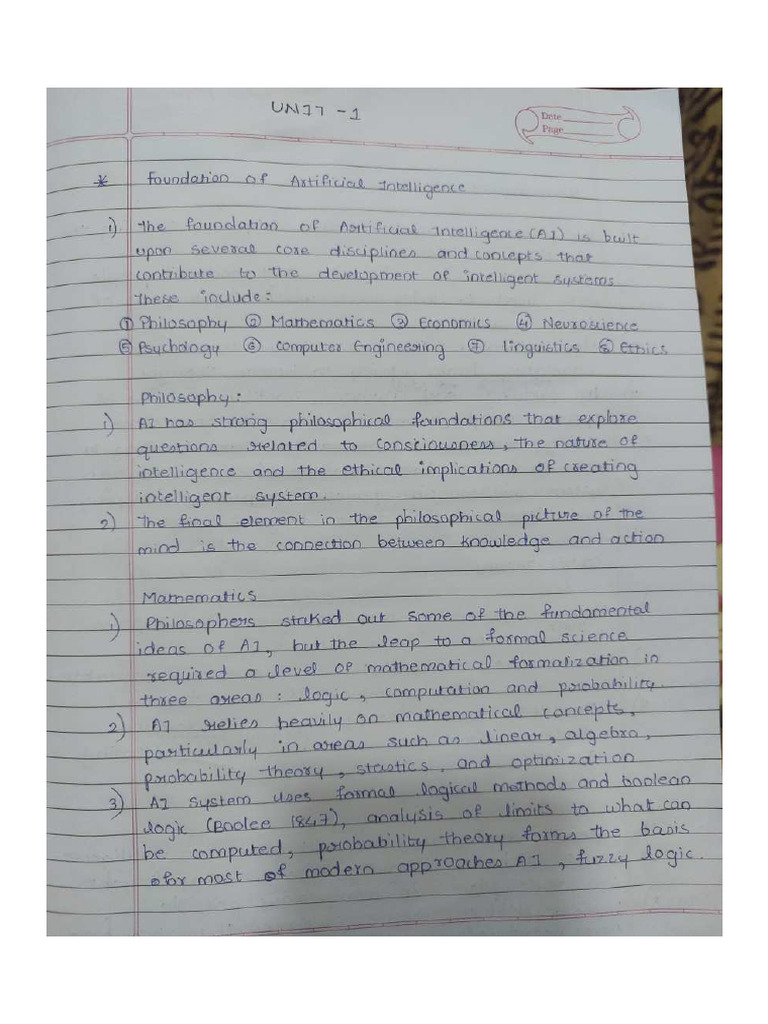 UNIT -1
Date
Page
* Foundation of Artificial Intelligence
1) The foundation of Artificial Intelligence (AI) is built
upon several core disciplines and concepts that
contribute to the development of intelligent systems
These include:
① Philosophy ② Mathematics ③ Economics ④ Neuroscience
⑤ Psychology ⑥ Computer Engineering ⑦ linguistics ⑧ Ethics
Philosophy:
1) AI has strong philosophical foundations that explore
questions related to consciousness, the nature of
intelligence and the ethical implications of creating
intelligent system.
2) The final element in the philosophical picture of the
mind is the connection between knowledge and action
Mathematics
1) Philosophers staked out some of the fundamental
ideas of AI, but the leap to a formal science
required a level of mathematical formalization in
three areas: logic, computation and probability.
2) AI relies heavily on mathematical concepts,
particularly in areas such as linear, algebra,
probability theory, stastics, and optimization
3) AI system uses formal logical methods and boolean
logic (Boolee 1847), analysis of limits to what can
be computed, probability theory forms the basis
for most of modern approaches AI, fuzzy logic.